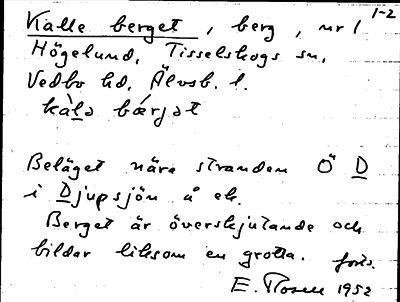 1-2
Kalle berget, berg, nr 1
Högelund, Tisselskogs sn,
Vedbo hd, Älvsb. l.
kàlə bǽrjət
Beläget nära stranden Ö D
i Djupsjön å ek.
Berget är överskjutande och
bildar liksom en grotta. forts.
E. Rosen 1952